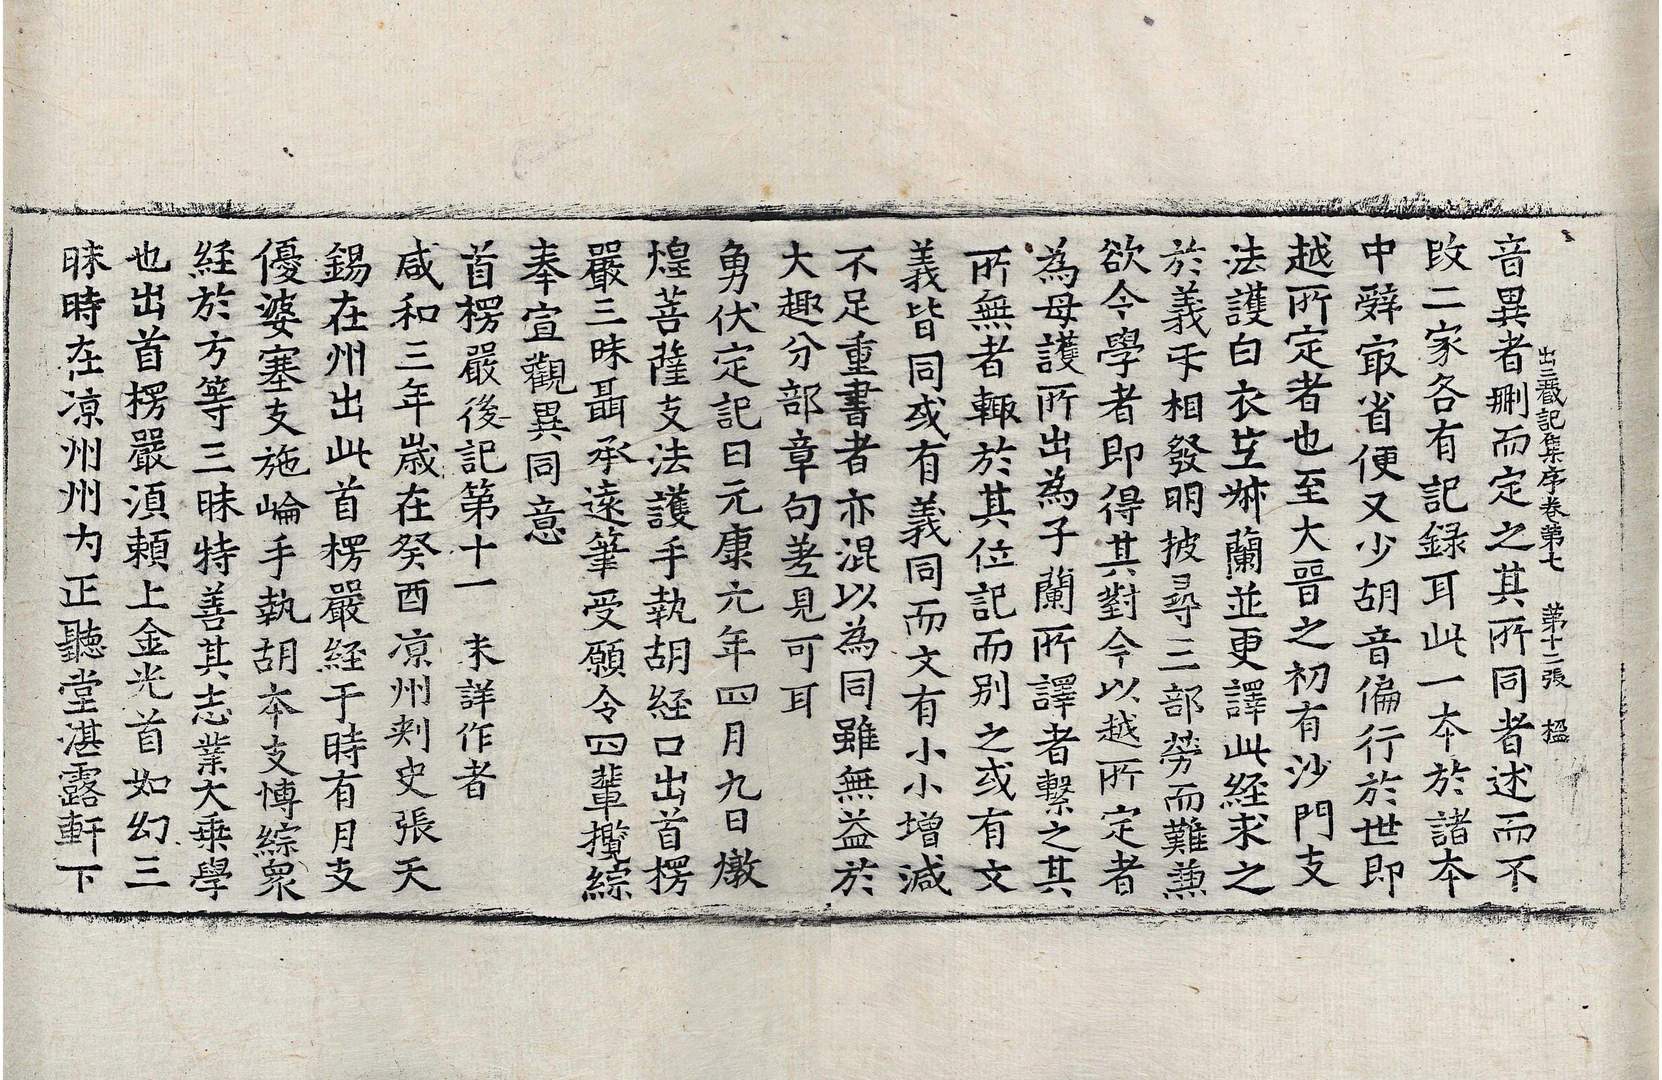 出三藏記集序卷第七　第十二張　楹
音異者刪而定之其所同者述而不
改二家各有記録耳此一本於諸本
中辭㝡省便又少胡音偏行於世即
越所定者也至大晉之初有沙門支
法護白衣竺𭉨蘭並更譯此経求之
於義𭕒相發明披尋三部勞而難兼
欲令學者即得其對今以越所定者
為母護所出為子蘭所譯者繫之其
所無者輙於其位記而别之或有文
義皆同或有義同而文有小小增減
不足重書者亦混以為同雖無益於
大趣分部章句差見可耳
勇伏定記曰元康元年四月九日燉
煌菩薩支法護手執胡経口出首楞
嚴三昧聶承遠筆受願令四輩攬綜
奉宣觀異同意
首楞嚴後記第十一　未詳作者
咸和三年歲在癸酉凉州刾史張天
錫在州出此首楞嚴経于時有月支
優婆塞支施崘手執胡本支博綜衆
経於方等三昧特善其志業大乗學
也出首楞嚴湏頼上金光首如幻三
昧時在凉州州内正聽堂湛露軒下